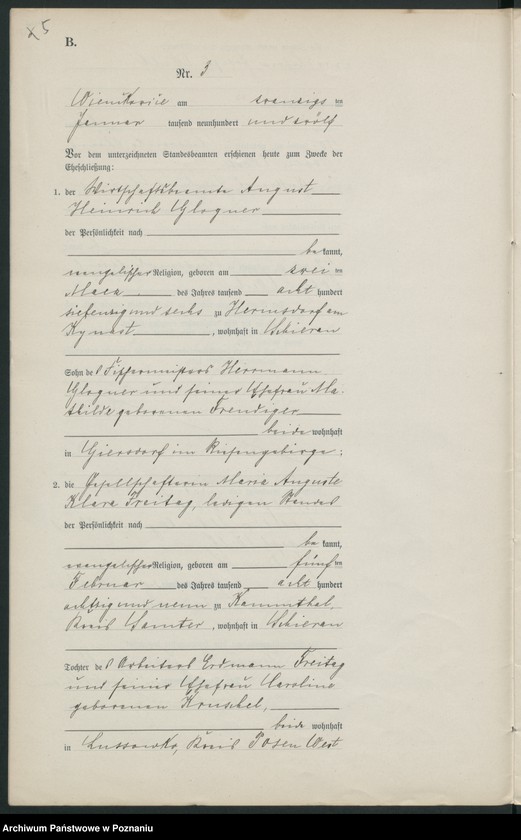 x5
B.
Nr. 3
am zwanzigs ten
Januar tausend neunhundert und zwölf
Vor dem unterzeichneten Standesbeamten erschienen heute zum Zwecke der
Eheschließung:
1. der Wirtschaftsbeamte August
Heinrich Glogner
der Persönlichkeit nach
be kannt,
evangelischer Religion, geboren am zwei ten
Maerz des Jahres tausend acht hundert
siebenzig und sechs zu Hermsdorf am
Kynast, wohnhaft in
Sohn des Tischermeisters Herrmann
Glogner und seiner Ehefrau Ma-
thilde geborenen Frendiger
beide wohnhaft
in Giersdorf im Riesengebirge;
2. die Gesellschafterin Maria Auguste
Klara Freitag, ledigen Standes
der Persönlichkeit nach
be kannt,
evangelischer Religion, geboren am fünf ten
Februar des Jahres tausend acht hundert
achtzig und neun zu Kammthal,
Kreis Samter, wohnhaft in
Tochter des Arbeiters Erdmann Freitag
und seiner Ehefrau Caroline
geborenen Kruschel,
beide wohnhaft
in Lussowko, Kreis Posen West
Archiwum Państwowe w Poznaniu